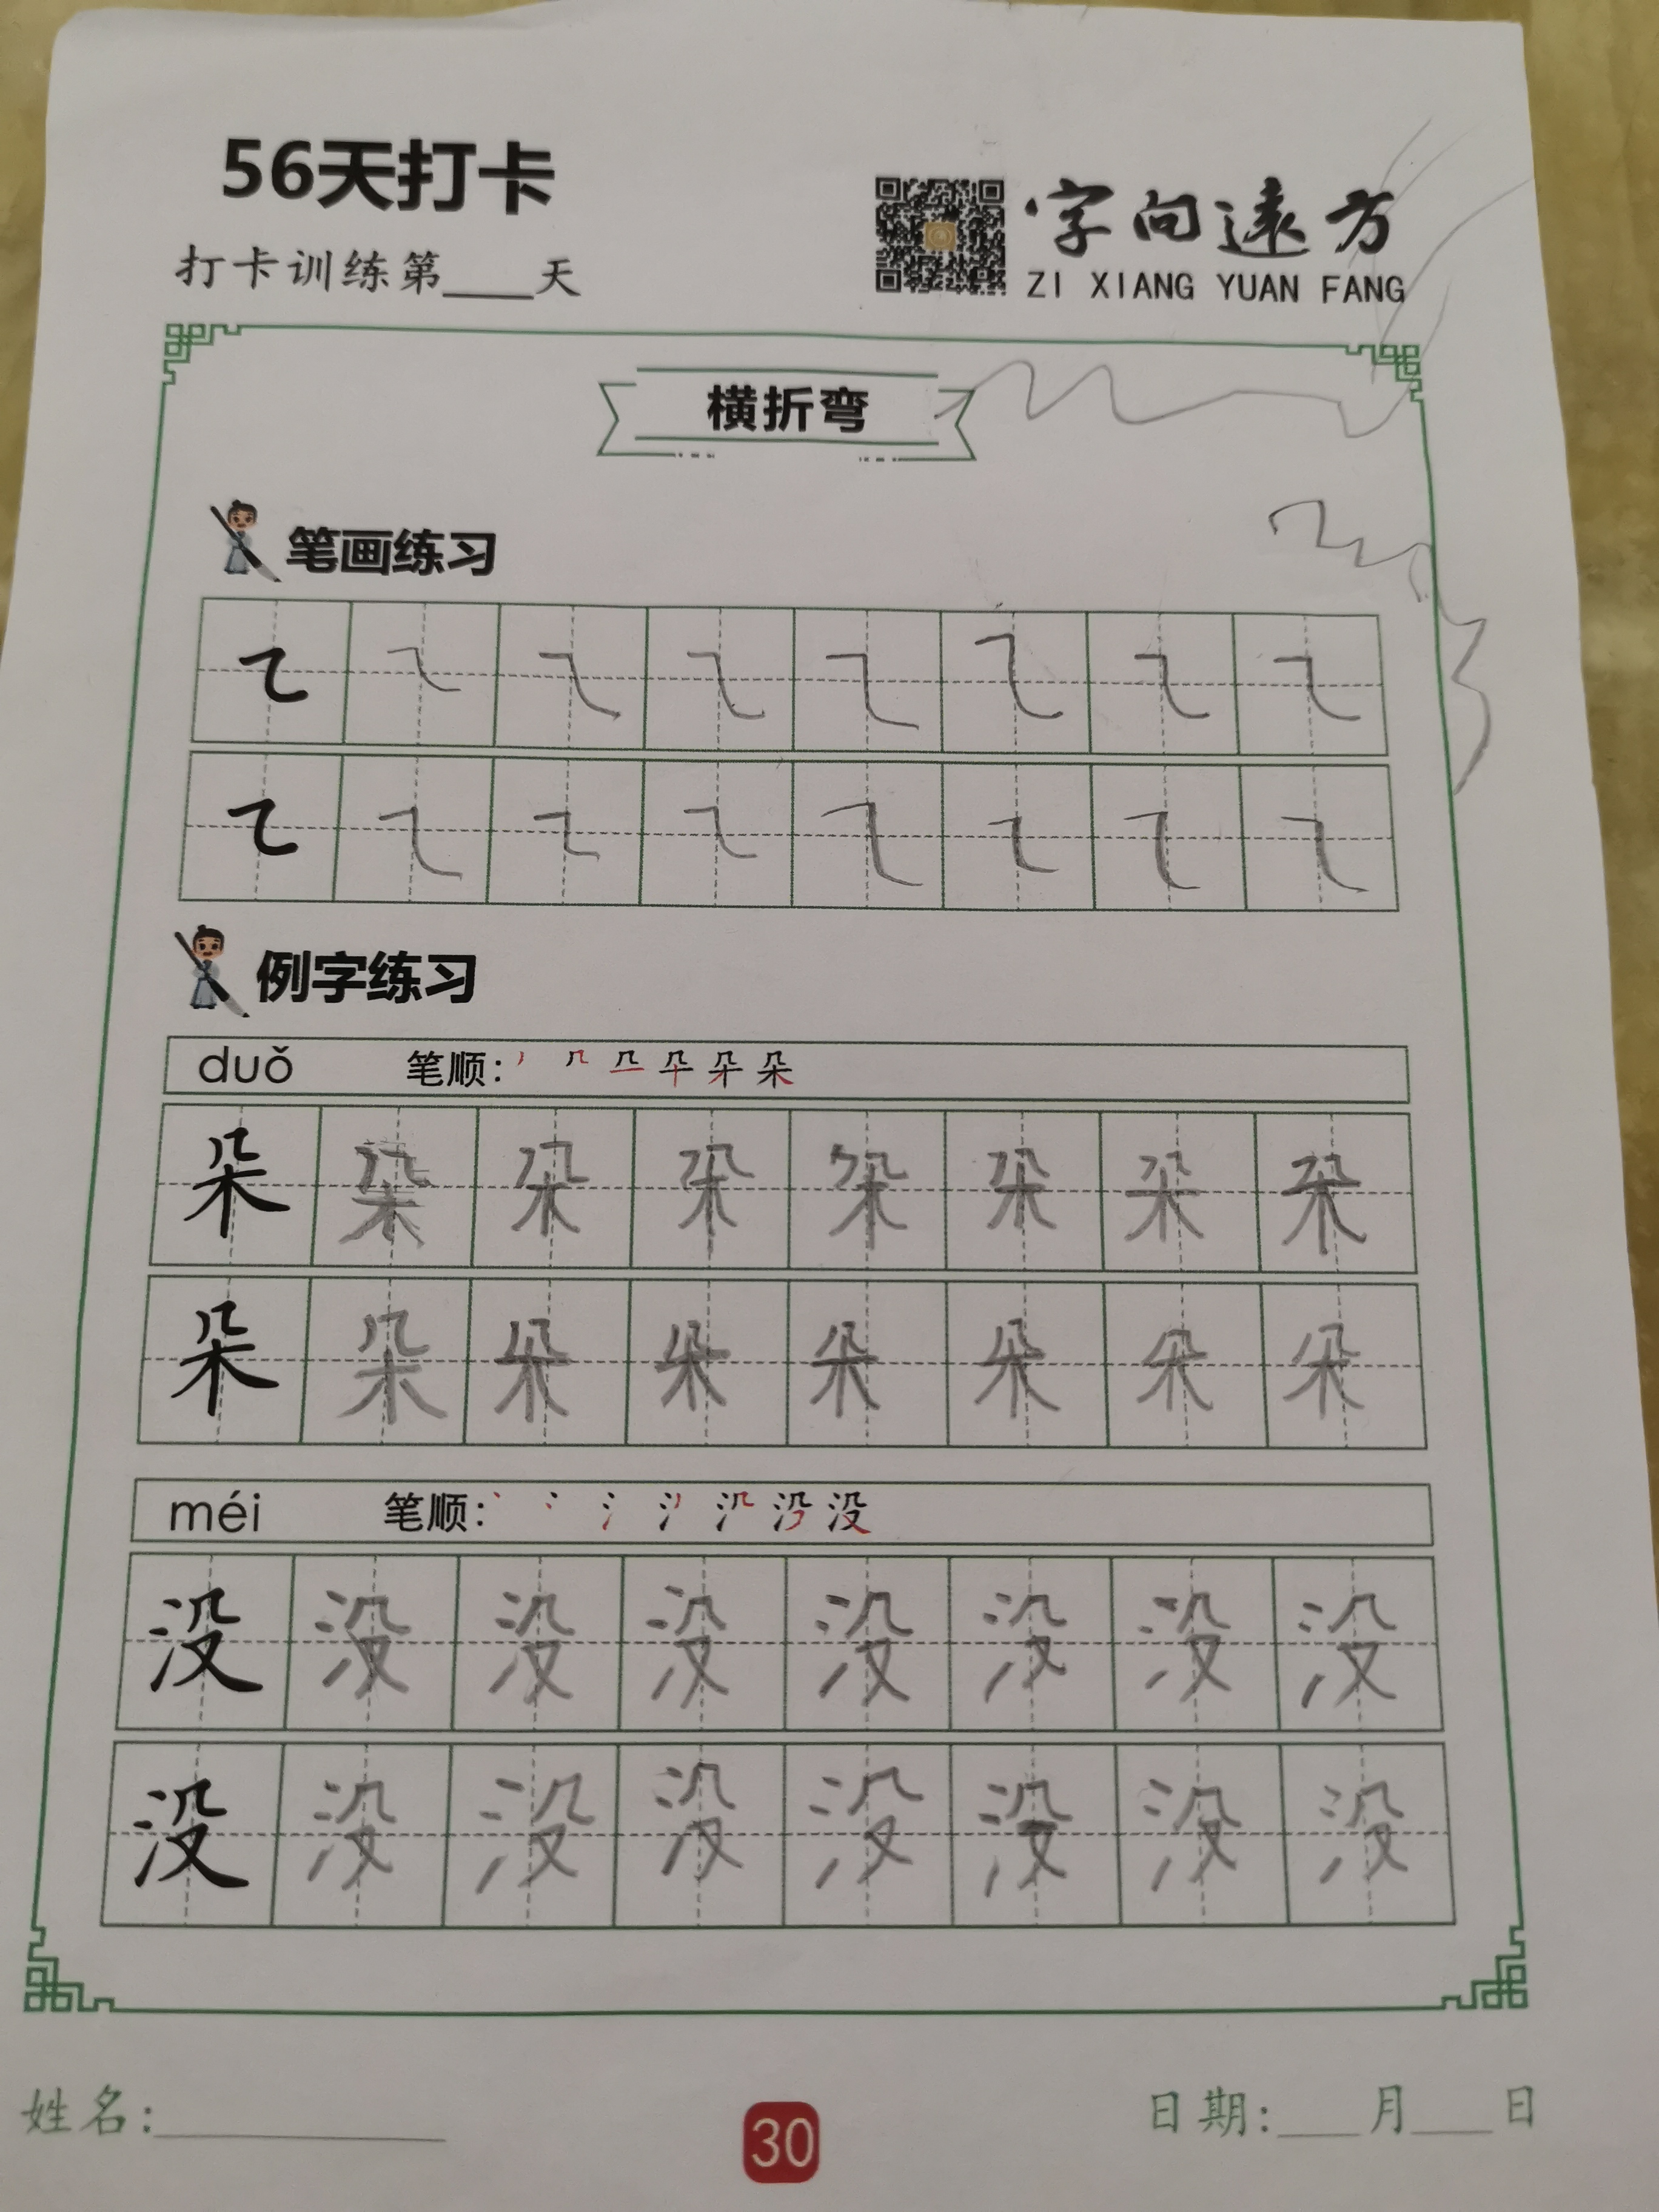 56天打卡
打卡训练第____天
字向远方
ZI XIANG YUAN FANG
横折弯
笔画练习
㇍ ㇍ ㇍ ㇍ ㇍ ㇍ ㇍ ㇍
㇍ ㇍ ㇍ ㇍ ㇍ ㇍ ㇍ ㇍
例字练习
duǒ 笔顺: 朵
朵 朵 朵 朵 朵 朵 朵 朵
朵 朵 朵 朵 朵 朵 朵 朵
méi 笔顺: 没
没 没 没 没 没 没 没 没
没 没 没 没 没 没 没 没
姓名:__________
30
日期:___月___日